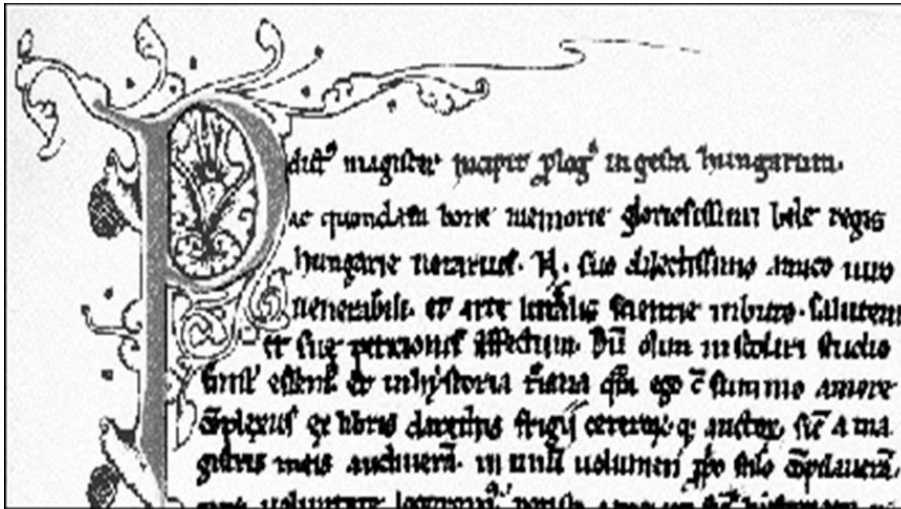 P dict⁹ magister Incipit plog⁹ in gesta hungarum.
ac quondam bone memorie gloriosissimi bele regis
hungarie notarius. N. suo dilectissimo amico uiro
uenerabili. et arte litt̄alis scientie inbuto. Salutem
et sue peticionis effectum. Dū olim in scolari studio
simul essem⁹ et in hystoria t̄iana q̄m ego c̄ summo amore
c̄plexus ex libris daretis frigii ceterorꝫ q; auctoꝝ, sic̄ a ma
gistris meis audiuerā. in unū uolumen ꝓpo stilo c̄pilauerā.
uoluntate legerem⁹